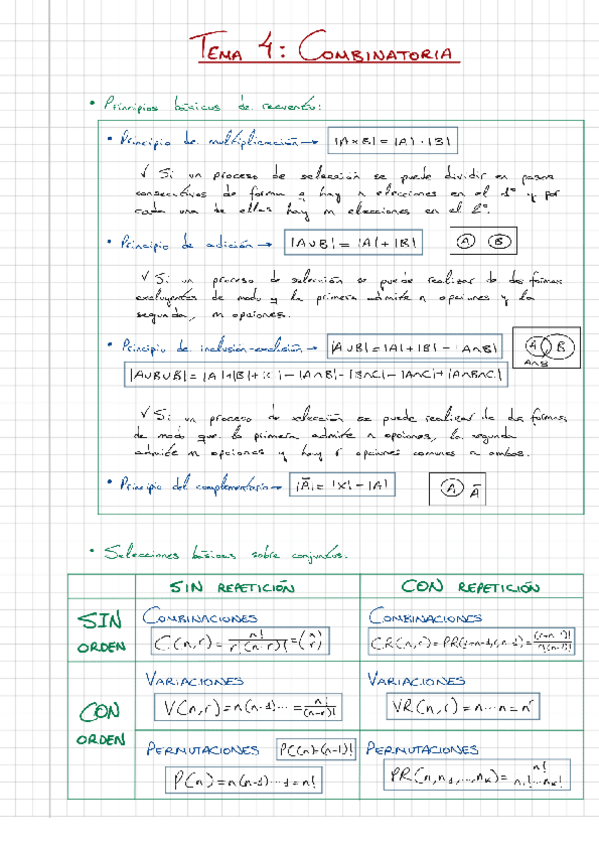 TEMA 4: COMBINATORIA
• Principios básicos de recuento:
• Principio de multiplicación → |A×B| = |A|·|B|
✓ Si un proceso de selección se puede dividir en pasos
consecutivos de forma q hay n elecciones en el 1º y por
cada una de ellas hay m elecciones en el 2º.
• Principio de adición → |A∪B| = |A| + |B| A B
✓ Si un proceso de selección se puede realizar de dos formas
excluyentes de modo q la primera admite n opciones y la
segunda, m opciones.
• Principio de inclusión-exclusión → |A∪B| = |A| + |B| - |A∩B| A B A∩B
|A∪B∪B| = |A|+|B|+|C| - |A∩B| - |B∩C| - |A∩C| + |A∩B∩C|
✓ Si un proceso de selección se puede realizar de dos formas,
de modo que la primera admite n opciones, la segunda
admite m opciones y hay r opciones comunes a ambos.
• Principio del complementario → |Ā| = |X| - |A| A Ā
• Selecciones básicas sobre conjuntos.
SIN REPETICIÓN CON REPETICIÓN
SIN ORDEN
COMBINACIONES
C(n,r) = n!/r!(n-r)! = (n r)
COMBINACIONES
CON ORDEN
VARIACIONES
V(n,r) = n(n-1)··· = n!/(n-r)!
VARIACIONES
VR(n,r) = n···n = nʳ
PERMUTACIONES PC(n)=(n-1)!
P(n) = n(n-1)···1 = n!
PERMUTACIONES
PR(n,n₁,...,nₖ) = n!/n₁!···nₖ!